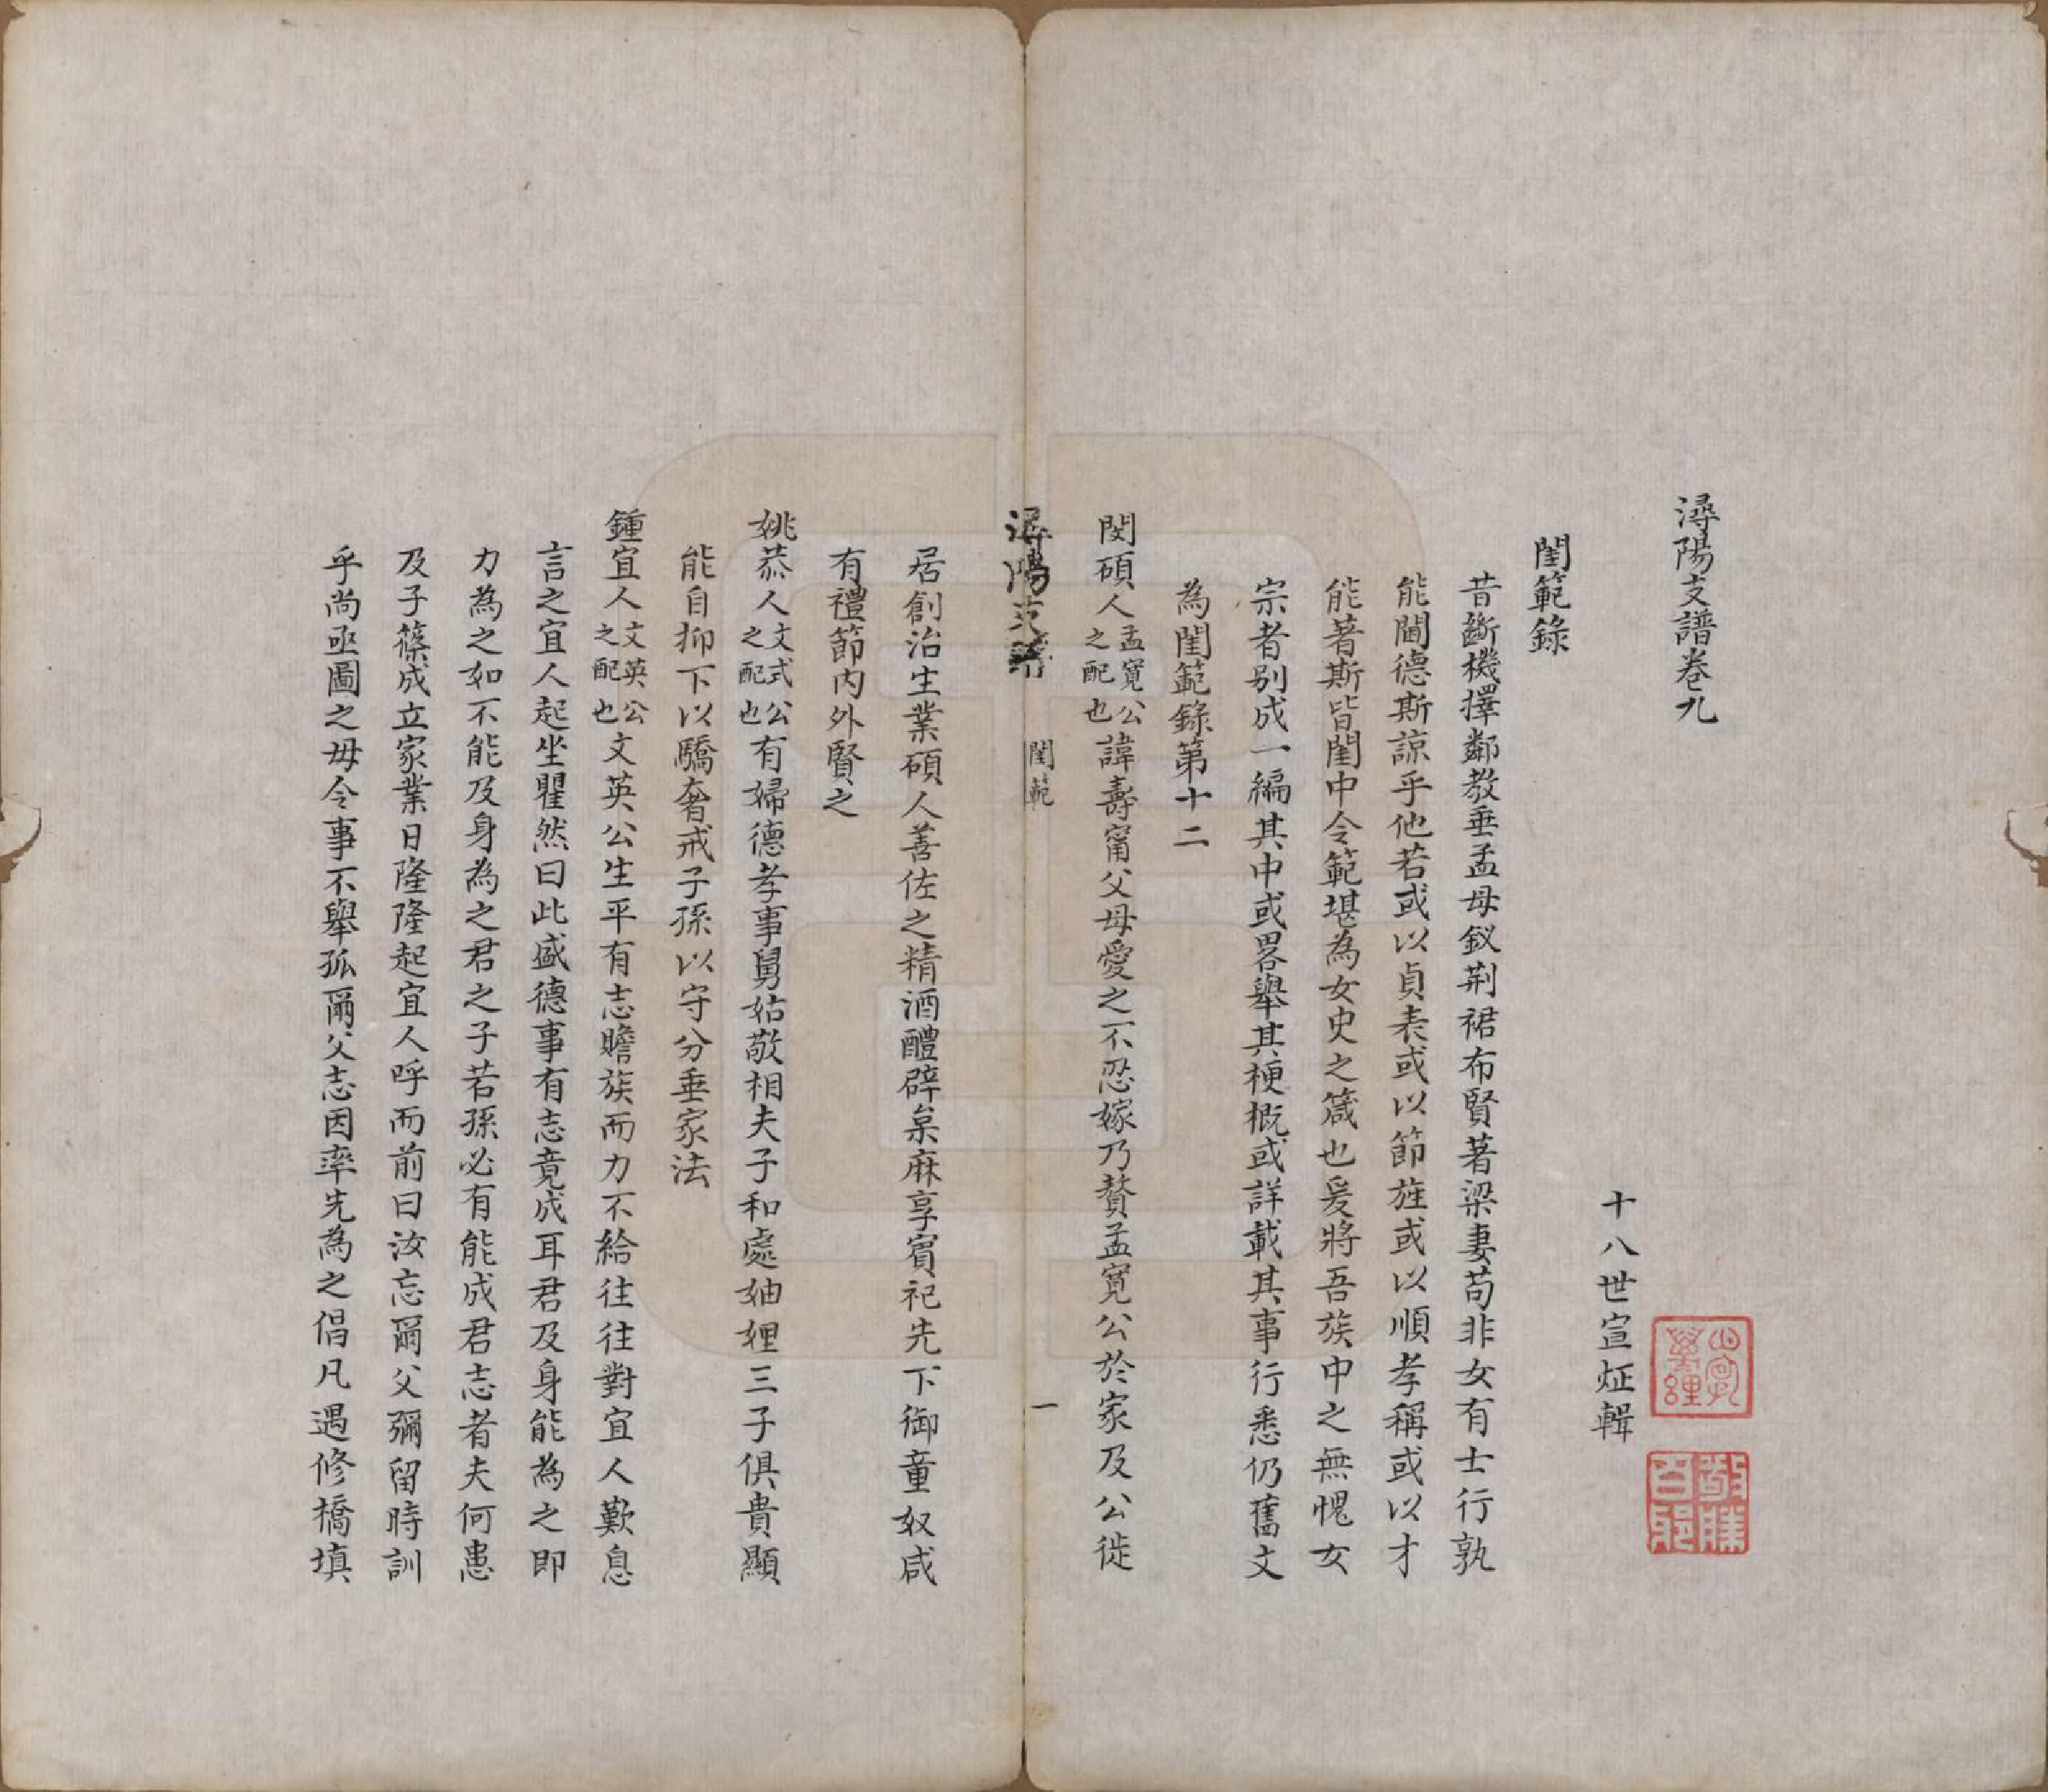 潯陽支譜卷九
十八世宣炡輯
閨範錄
昔斷機擇鄰教垂孟母釵荆裙布賢著梁妻苟非女有士行孰
能閫德斯諒乎他若或以貞表或以節旌或以順孝稱或以才
能著斯皆閨中令範堪為女史之箴也爰將吾族中之無愧女
宗者别成一編其中或畧舉其梗概或詳載其事行悉仍舊文
為閨範錄第十二
閔碩人孟寬公之配也諱壽甯父母愛之不忍嫁乃贅孟寬公於家及公徙
潯陽支譜 閨範 一
居創治生業碩人善佐之精酒醴辟枲麻享賓祀先下御童奴咸
有禮節内外賢之
姚恭人文式公之配也有婦德孝事舅姑敬相夫子和處妯娌三子俱貴顯
能自抑下以驕奢戒子孫以守分垂家法
鍾宜人文英公之配也文英公生平有志贍族而力不給往往對宜人歎息
言之宜人起坐瞿然曰此盛德事有志竟成耳君及身能為之即
力為之如不能及身為之君之子若孫必有能成君志者夫何患
及子篠成立家業日隆隆起宜人呼而前曰汝忘爾父彌留時訓
乎尚亟圖之毋令事不舉孤爾父志因率先為之倡凡遇修橋填